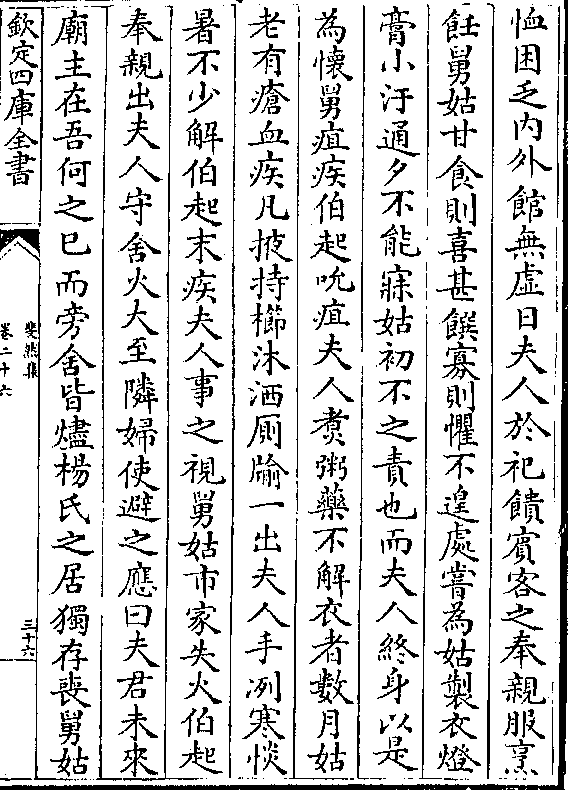 恤困乏内外館無虚日夫人於祀饋賓客之奉親服烹
飪舅姑甘食則喜甚饌寡則懼不遑處嘗為姑製衣燈
膏小汙通夕不能寐姑初不之責也而夫人終身以是
為懷舅疽疾伯起吮疽夫人煑粥藥不解衣者數月姑
老有瘡血疾凡掖持櫛沐洒厠牏一出夫人手冽寒惔
暑不少解伯起末疾夫人事之視舅姑市家失火伯起
奉親出夫人守舍火大至隣婦使避之應曰夫君未來
廟主在吾何之已而旁舍皆燼楊氏之居獨存喪舅姑
欽定四庫全書
斐然集
卷二十六
三十六